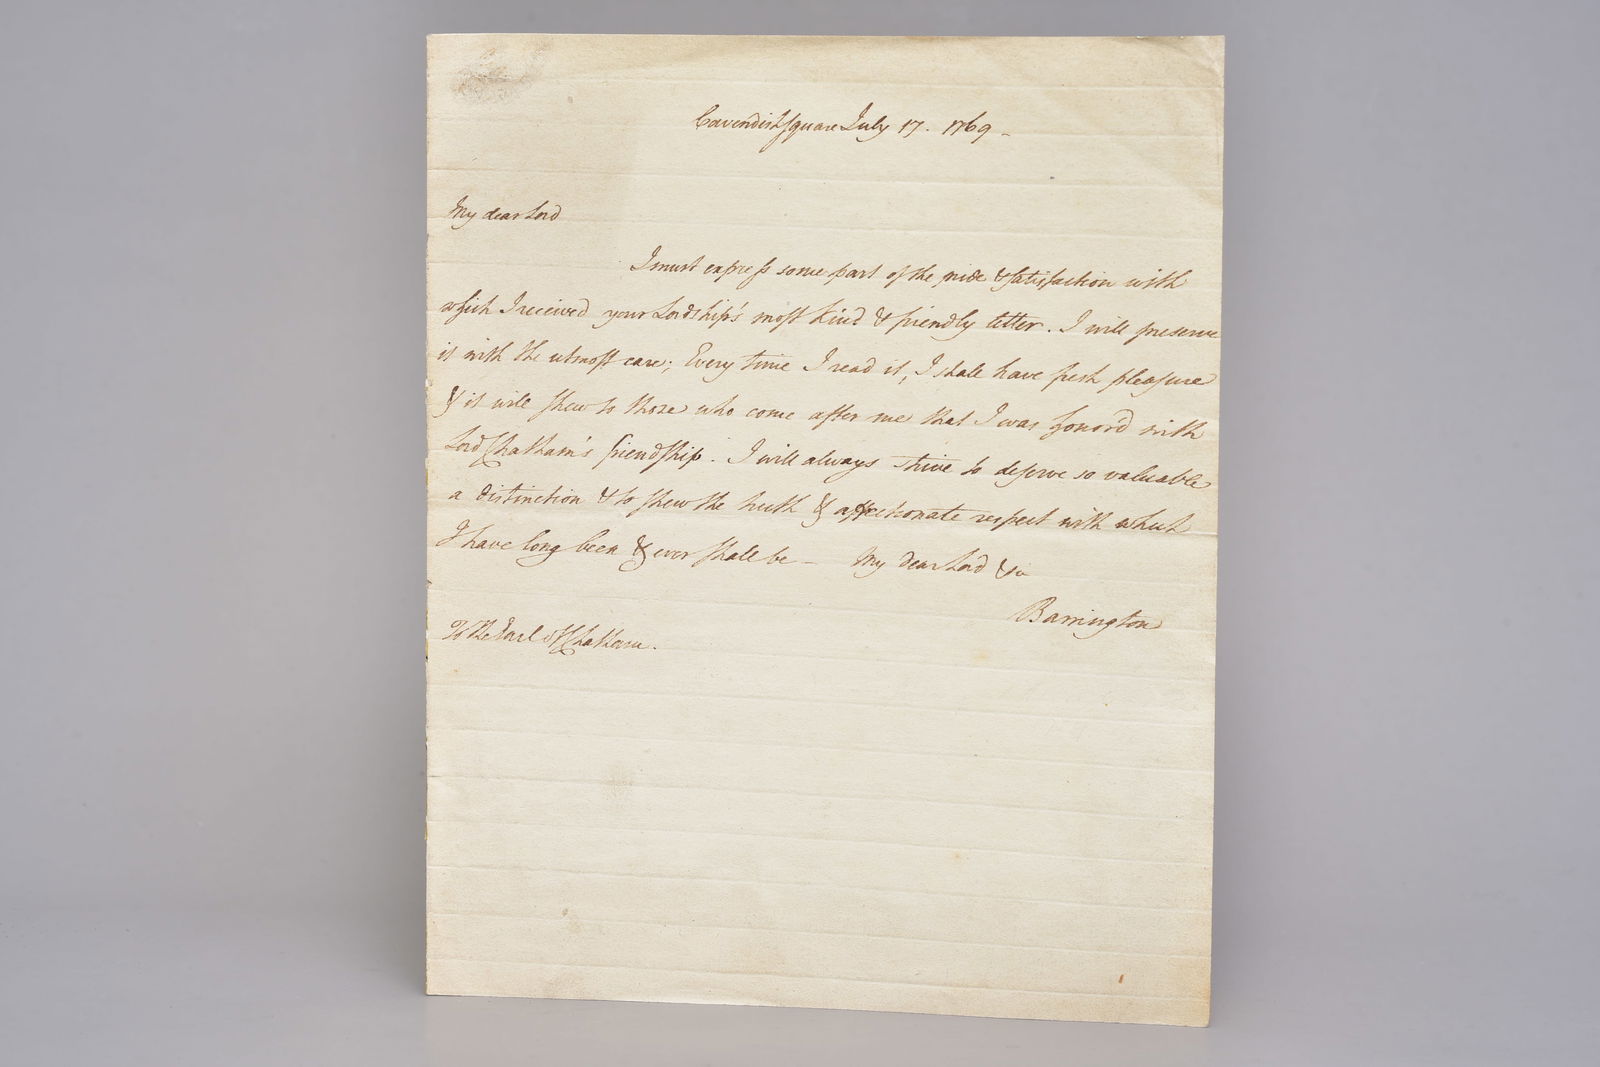 Cavendish Square July 17. 1769 -
My dear Lord
I must express some part of the pride & satisfaction with
which I received your Lordship's most kind & friendly letter. I will preserve
it with the utmost care; Every time I read it, I shall have fresh pleasure
& it will shew to those who come after me that I was honor'd with
Lord Chatham's friendship. I will always strive to deserve so valuable
a distinction & to shew the truth & affectionate respect with which
I have long been & ever shall be - My dear Lord &c
Barrington
To the Earl of Chatham.